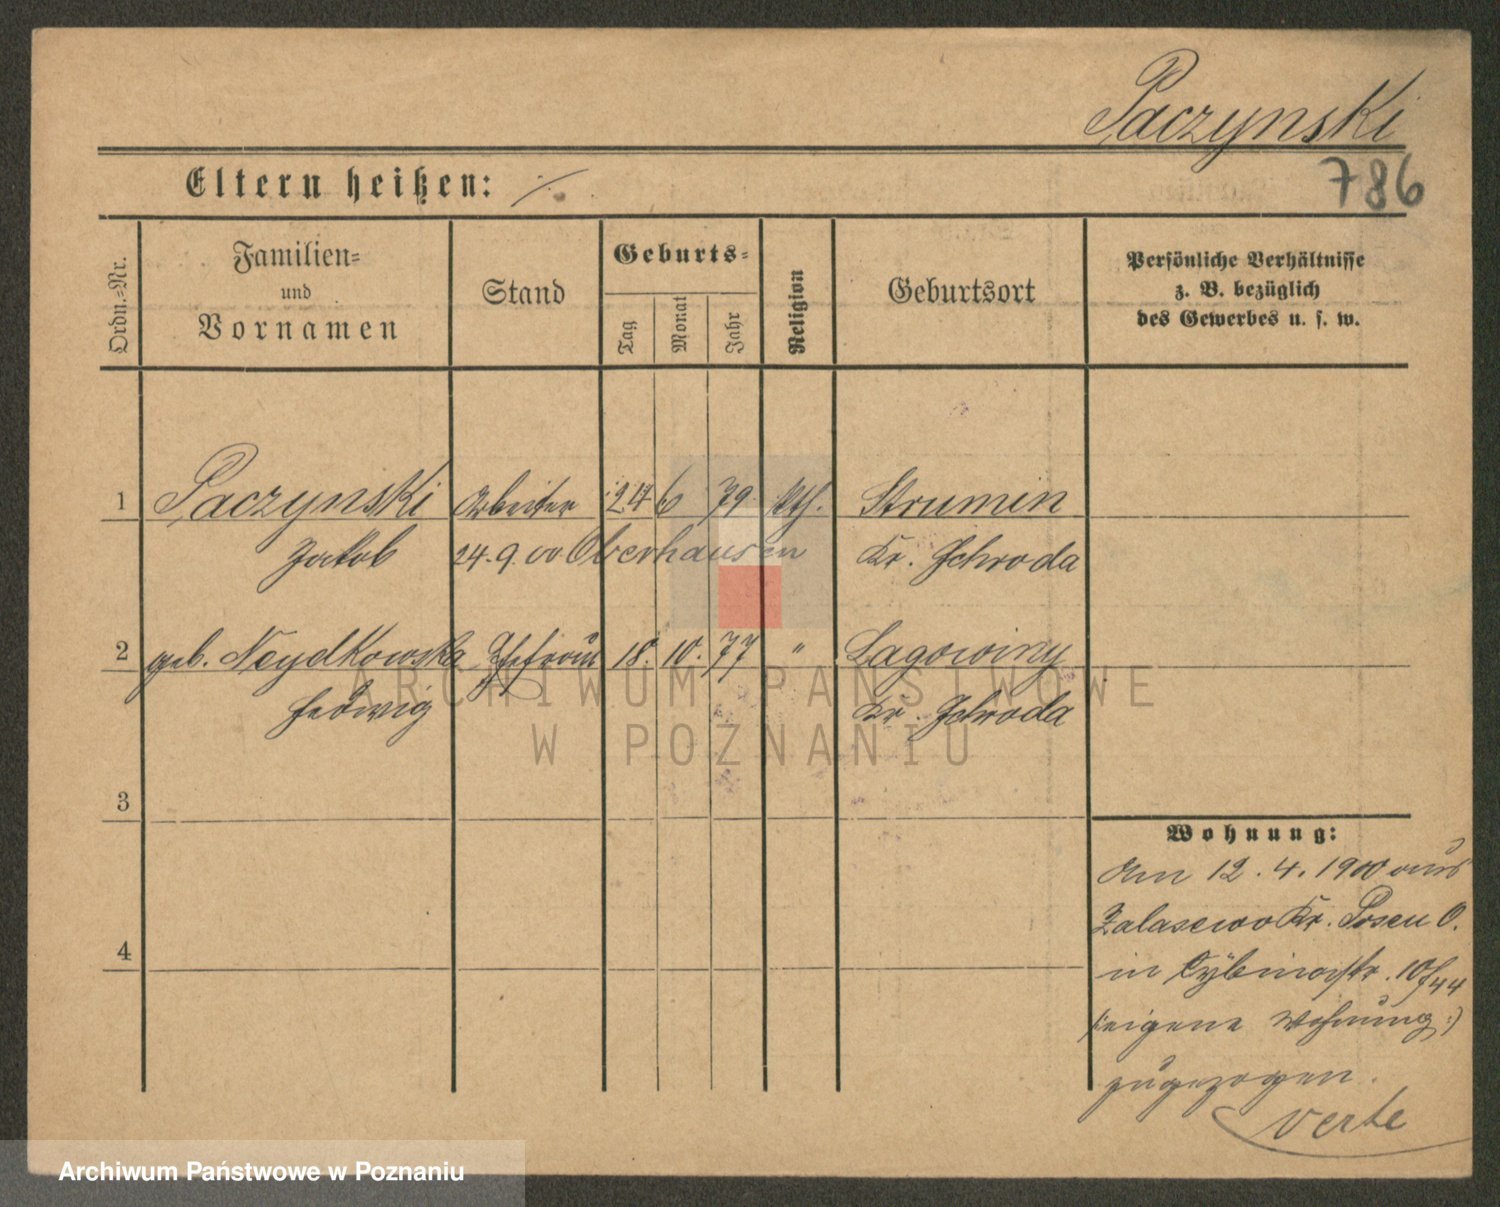 Paczynski
786
Eltern heißen: ./.
Ordn.=Nr.
Familien=
und
Vornamen
Stand
Geburts=
Tag
Monat
Jahr
Religion
Geburtsort
Persönliche Verhältnisse
z. B. bezüglich
des Gewerbes u. s. w.
1 Paczynski Arbeiter 24 6 79 kth. Strumin
Jakob 24.9.00 Oberhausen Kr. Schroda
2 geb. Neydkowska Ehefrau 18. 10. 77 " Lagowiny
Hedwig Kr. Schroda
3
4
Wohnung:
Am 12.4.1900 aus
Zalasewo Kr. Posen O.
in Cybinastr. 10/44
(: eigene Wohnung :)
zugezogen.
verte
ARCHIWUM PAŃSTWOWE
W POZNANIU
Archiwum Państwowe w Poznaniu